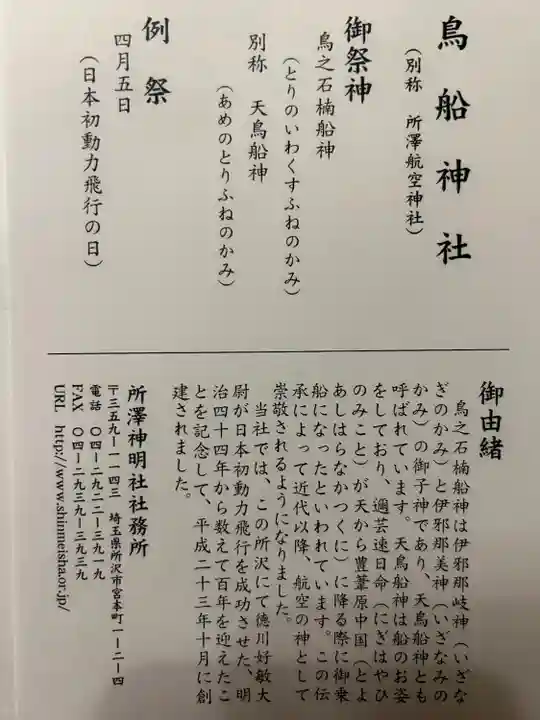 鳥船神社
（別称　所澤航空神社）
御祭神
鳥之石楠船神
（とりのいわくすふねのかみ）
別称　天鳥船神
（あめのとりふねのかみ）
例祭
四月五日
（日本初動力飛行の日）
御由緒
鳥之石楠船神は伊邪那岐神（いざな
ぎのかみ）と伊邪那美神（いざなみの
かみ）の御子神であり、天鳥船神とも
呼ばれています。天鳥船神は船のお姿
をしており、邇芸速日命（にぎはやひ
のみこと）が天から豊葦原中国（とよ
あしはらなかつくに）に降る際に御乗
船になったといわれています。この伝
承によって近代以降、航空の神として
崇敬されるようになりました。
当社では、この所沢にて徳川好敏大
尉が日本初動力飛行を成功させた、明
治四十四年から数えて百年を迎えたこ
とを記念して、平成二十三年十月に創
建されました。
所澤神明社社務所
〒三五九－一一四三　埼玉県所沢市宮本町一－二－四
電話　〇四－二九二二－三九一九
FAX　〇四－二九三九－三九三九
URL　http://www.shinmeisha.or.jp/